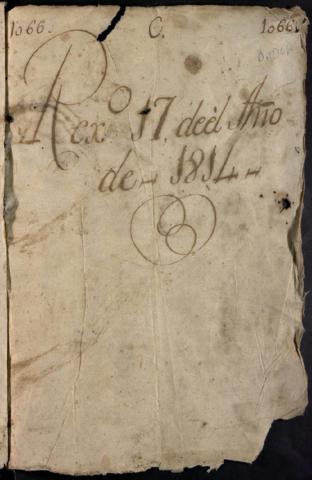 1066. C. 1066.
Rexº 17. deel Año
de 1814